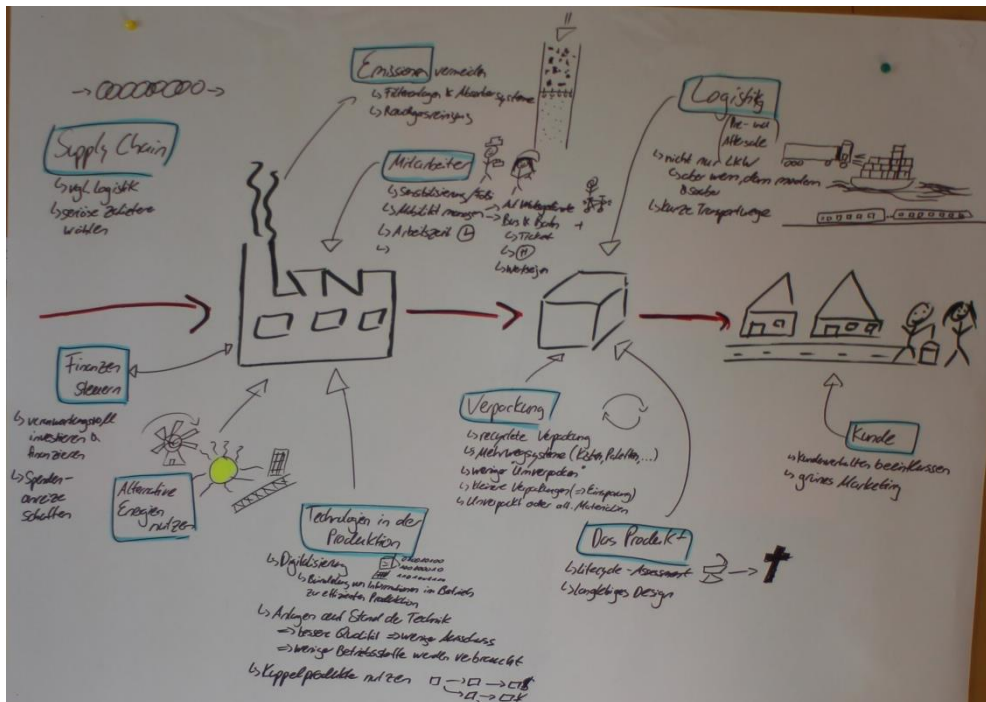 Supply Chain
↳ vgl. Logistik
↳ seriöse
wählen
Emissionen vermeiden
↳ Filteranlagen & Absorbersysteme
↳ Rauchgasreinigung
Mitarbeiter
↳ Sensibilisierung
↳ Mobilität managen →
Bus & Bahn +
↳ Ticket
↳ (H)
↳ Arbeitszeit
↳
Logistik
Pre- und
Aftersale
↳ nicht nur LKW
↳ aber wenn, dann modern
& sauber
↳ kurze Transportwege
Finanzen
steuern
↳ verantwortungsvoll
investieren &
finanzieren
↳ Spenden-
anreize
schaffen
Alternative
Energien
nutzen
Technologien in der
Produktion
↳ Digitalisierung
↳ Bündelung von Informationen im Betrieb
zur effizienten Produktion
↳ Anlagen auf Stand der Technik
⇒ bessere Qualität ⇒ weniger Ausschuss
⇒ weniger Betriebsstoffe werden verbraucht
↳ Kuppelprodukte nutzen
Verpackung
↳ recyclete Verpackung
↳ Mehrwegsysteme (Kisten, Paletten, ...)
↳ weniger "Umverpacken"
↳ kleinere Verpackungen (⇒ Einsparung)
↳ Unverpackt oder alt. Materialien
Das Produkt
↳ Lifecycle-Assessment
↳ langlebiges Design
Kunde
↳ Kundenverhalten beeinflussen
↳ grünes Marketing